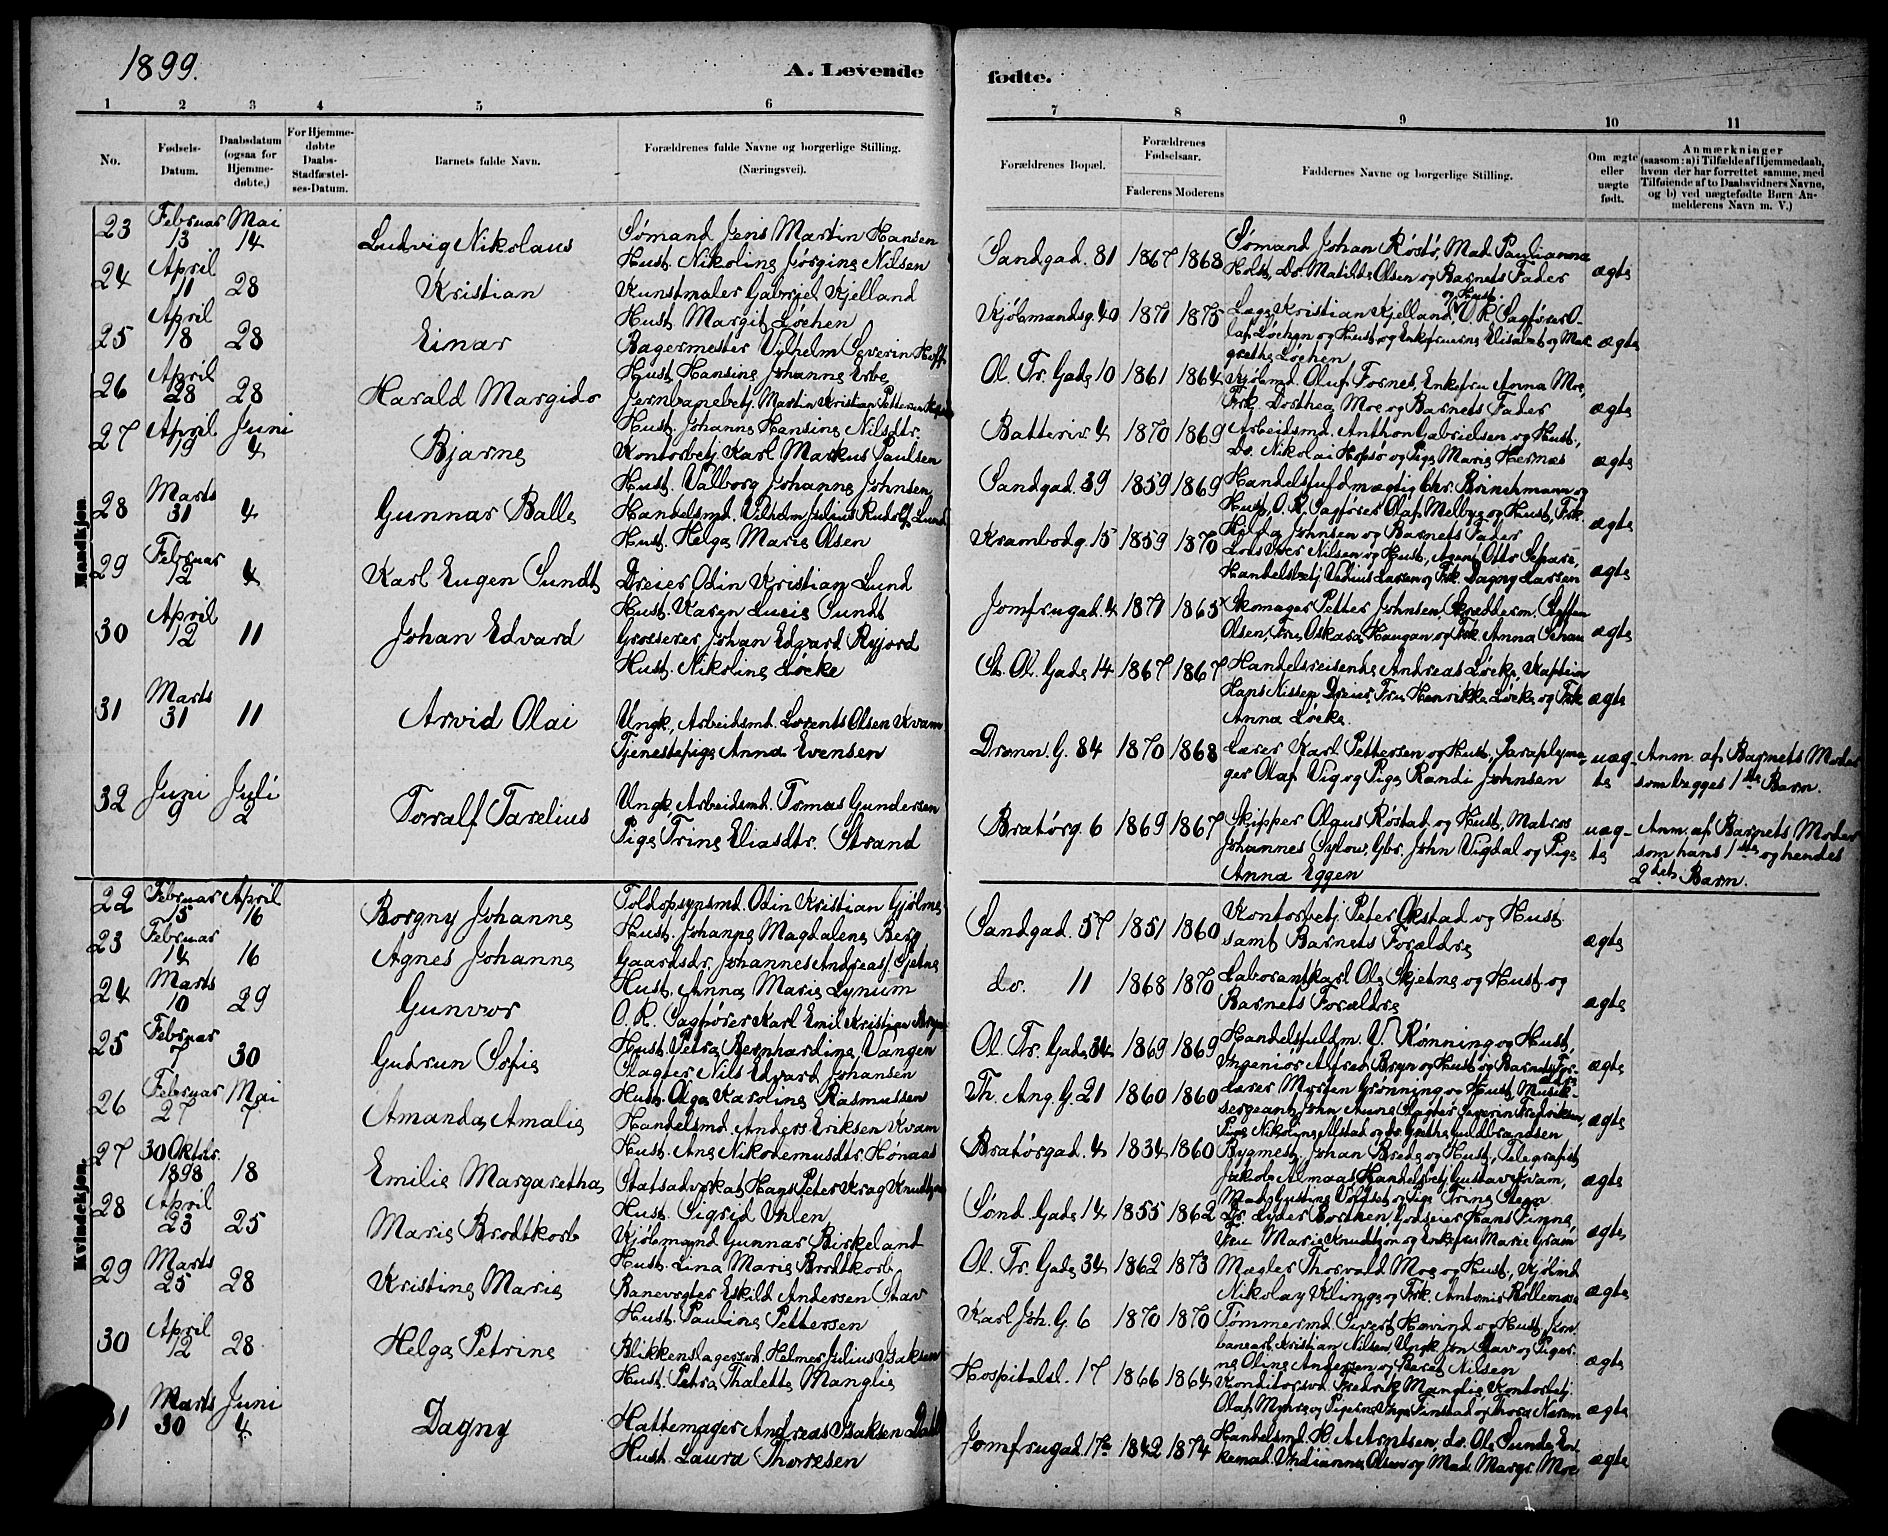 1899.
A. Levende fødte.
1 2 3 4 5 6 7 8 9 10 11
No.
Fødsels-Datum.
Daabsdatum (ogsaa for Hjemmedøbte.)
For Hjemmedøbte Daabs-Stadfæstelses-Datum.
Barnets fulde Navn.
Forældrenes fulde Navne og borgerlige Stilling. (Næringsvei).
Forældrenes Bopæl.
Forældrenes Fødselsaar.
Faderens Moderens
Faddernes Navne og borgerlige Stilling.
Om ægte eller uægte født.
Anmærkninger (saasom: a) i Tilfælde af Hjemmedaab, hvem der har forrettet samme, med Tilføiende af to Daabsvidners Navne, og b) ved uægtefødte Børn Anmelderens Navn m. V.)
Mandkjøn
23 Februar 13 Mai 14 Ludvig Nikolaus
Sømand Jens Martin Hansen
Hust. Nikoline Jørgine Nilsen
Sandgad. 81 1867 1868
Sømand Johan Røstø, Mad. Paulianna
Holte, Do. Matilde Olsen og Barnets Fader
ægte
24 April 11 28 Kristian
Kunstmaler Gabriel Kjelland
Hust. Margit Løchen
Kjøbmandsg. 40 1871 1875
og Hust.
Læge Kristian Kjelland, O. R. Sagfører O-
laf Løchen og Hust. og Enkefruerne Elisabet og Mar-
grethe Løchen
ægte
25 April 18 28 Einar
Bagermester Vilhelm Severin Hoff
Hust. Hansine Johanne Erbe
Ol. Tr. Gade 10 1861 1864
Kjøbmd. Oluf Fosnes, Enkefru Anna Moe,
Frk. Dorthea Moe og Barnets Fader
ægte
26 April 28 Harald Margido
Jernbanebetj. Martin Kristian Pettersen
Hust. Johanne Hansine Nilsdtr.
Batteriv. 4 1870 1869
Arbeidsmd. Anthon Gabrielsen og Hust.,
Do. Nikolai Hopsø og Pige Marie Hernes
ægte
27 April 19 Juni 4 Bjarne
Kontorbetj. Karl Markus Paulsen
Hust. Valborg Johanne Johnsen
Sandgad. 39 1859 1869
Handelsfuldmægtig Chr. Brinchmann og
Hust, O. R. Sagfører Olaf Melbye og Hust, Frk.
Hilda Johnsen og Barnets Fader
ægte
28 Marts 31 4 Gunnar Balle
Handelsmd. Vilhelm Julius Rudolf Lund
Hust. Helga Marie Olsen
Krambodg. 15 1859 1870
Lods Iver Nilsen og Hust, Agent Otto
Handelsbetj. Larsen og Frk. Dagny Larsen
ægte
29 Februar 12 4 Karl Eugen Sundt
Dreier Odin Kristian Lund
Hust. Karen Lucie Sundt
Jomfrugad. 4 1871 1865
Skomager Petter Johnsen, Skrædderm. Steffen
Olsen, Fru Oskara Haugan og Frk. Anna
ægte
30 April 12 11 Johan Edvard
Grosserer Johan Edvard Ryjord
Hust. Nikoline Løcke
St. Ol. Gade 14 1867 1867
Handelsreisende Andreas Løcke, Kaptein
Hans Nissen Dreier, Fru Henrikke Løcke og Frk
Anna Løcke.
ægte
31 Marts 31 11 Arvid Olai
Ungk., Arbeidsmd. Lorents Olsen Kvam
Tjenestepige Anna Evensen
Dronn. G. 84 1870 1868
Lærer Karl Pettersen og Hust., Paraplyma-
ger Olaf Vig og Pige Randi Johnsen
uæg-
te
Anm. af Barnets Moder
som begges 1ste Barn.
32 Juni 9 Juli 2 Torralf Tarelius
Ungk. Arbeidsmd. Tomas Gundersen
Pige Trine Eliasdtr. Strand
Bratørg. 6 1869 1867
Skipper Olaus Røstad og Hust, Matros
Johannes Sylow, Gbr. John Vigdal og Pige
Anna Eggen
uæg-
te
Anm. af Barnets Moder
som hans 1ste og hendes
2det Barn.
Kvindekjøn.
22 Februar 15 April 16 Borgny Johanne
Toldopsynsmd. Odin Kristian Gjølme
Hust. Johanne Magdalene Berg
Sandgad. 57 1851 1860
Kontorbetj. Peter Okstad og Hust
samt Barnets Forældre
ægte
23 Februar 14 16 Agnes Johanne
Gaardsdr. Johannes Andreas Skjetne
Hust. Anna Marie Lynum
do. 11 1868 1870
Laborantkarl Ole Skjetne og Hust og
Barnets Forældre
ægte
24 Marts 10 29 Gunvor
O. R. Sagfører Karl Emil Kristian Bryn
Hust. Petra Bernhardine Vangen
Ol. Tr. Gade 34 1869 1869
Handelsfuldm. V. Rønning og Hust,
Ingeniør Alfred Bryn og Hust og Barnets For-
ældre
ægte
25 Februar 7 30 Gudrun Sofie
Slagter Nils Edvard Johansen
Hust. Olga Karoline Rasmussen
Th. Ang. G. 21 1860 1860
Lærer Morten Grønning og Hust, Musik-
sergeant John Aune, Slagter Severin Fredriksen,
Pige Nikoline Alstad og do. Grethe Guldbrandsen
ægte
26 Februar 27 Mai 7 Amanda Amalie
Handelsmd. Anders Eriksen Kvam
Hust. Ane Nikodemusdtr. Hønaas
Bratørgad. 4 1834 1860
Bygmest. Johan Brede og Hust, Telegrafist
Jakob Almaas, Handelsbetj. Gustav Kvam,
Mad. Gustine Voldset og Pige Trine Stein
ægte
27 30 Oktbr. 1898 18 Emilie Margaretha
Statsadvokat Hans Peter Krag Knudtzon
Hust. Sigrid Uhlen
Sønd. Gade 14 1855 1862
Dr. Lyder Borthen, Godseier Hans Finne,
Fru Marie Knudtzon og Enkefru Marie Gram
ægte
28 April 23 25 Marie Brodtkorb
Kjøbmand Gunnar Birkeland
Hust. Lina Marie Brodtkorb
Ol. Tr. Gade 34 1862 1873
Mægler Thorvald Moe og Hust., Kjøbmd
Nikolay Klinge og Frk. Antonie
ægte
29 Marts 25 28 Kristine Marie
Banevogter Eskild Andersen Stav
Hust. Pauline Pettersen
Karl Joh. G. 6 1870 1870
Tømmermd. Sivert Hovind og Hust,
Kristian Nilsen, Ungk. Jon Stav og Piger-
ne Oline Andersen og Beret Nilsen
ægte
30 April 12 28 Helga Petrine
Blikkenslagersvd. Helmer Julius Isaksen
Hust. Petra Thalette Manglie
Hospitalsl. 17 1866 1864
Konditorsvd. Fredrik Manglie, Kontorbetj.
Olaf Myhre og Pigerne Inga Finstad og Thora Næram
ægte
31 Marts 30 Juni 4 Dagny
Hattemager Andreas Isaksen Dahl
Hust. Laura Thoresen
Jomfrugad. 17 1842 1874
Handelsmd. H. A. Arntsen, do. Ole Sunde, En-
kemad. Indianne Olsen og Mad. Margr. Moe
ægte